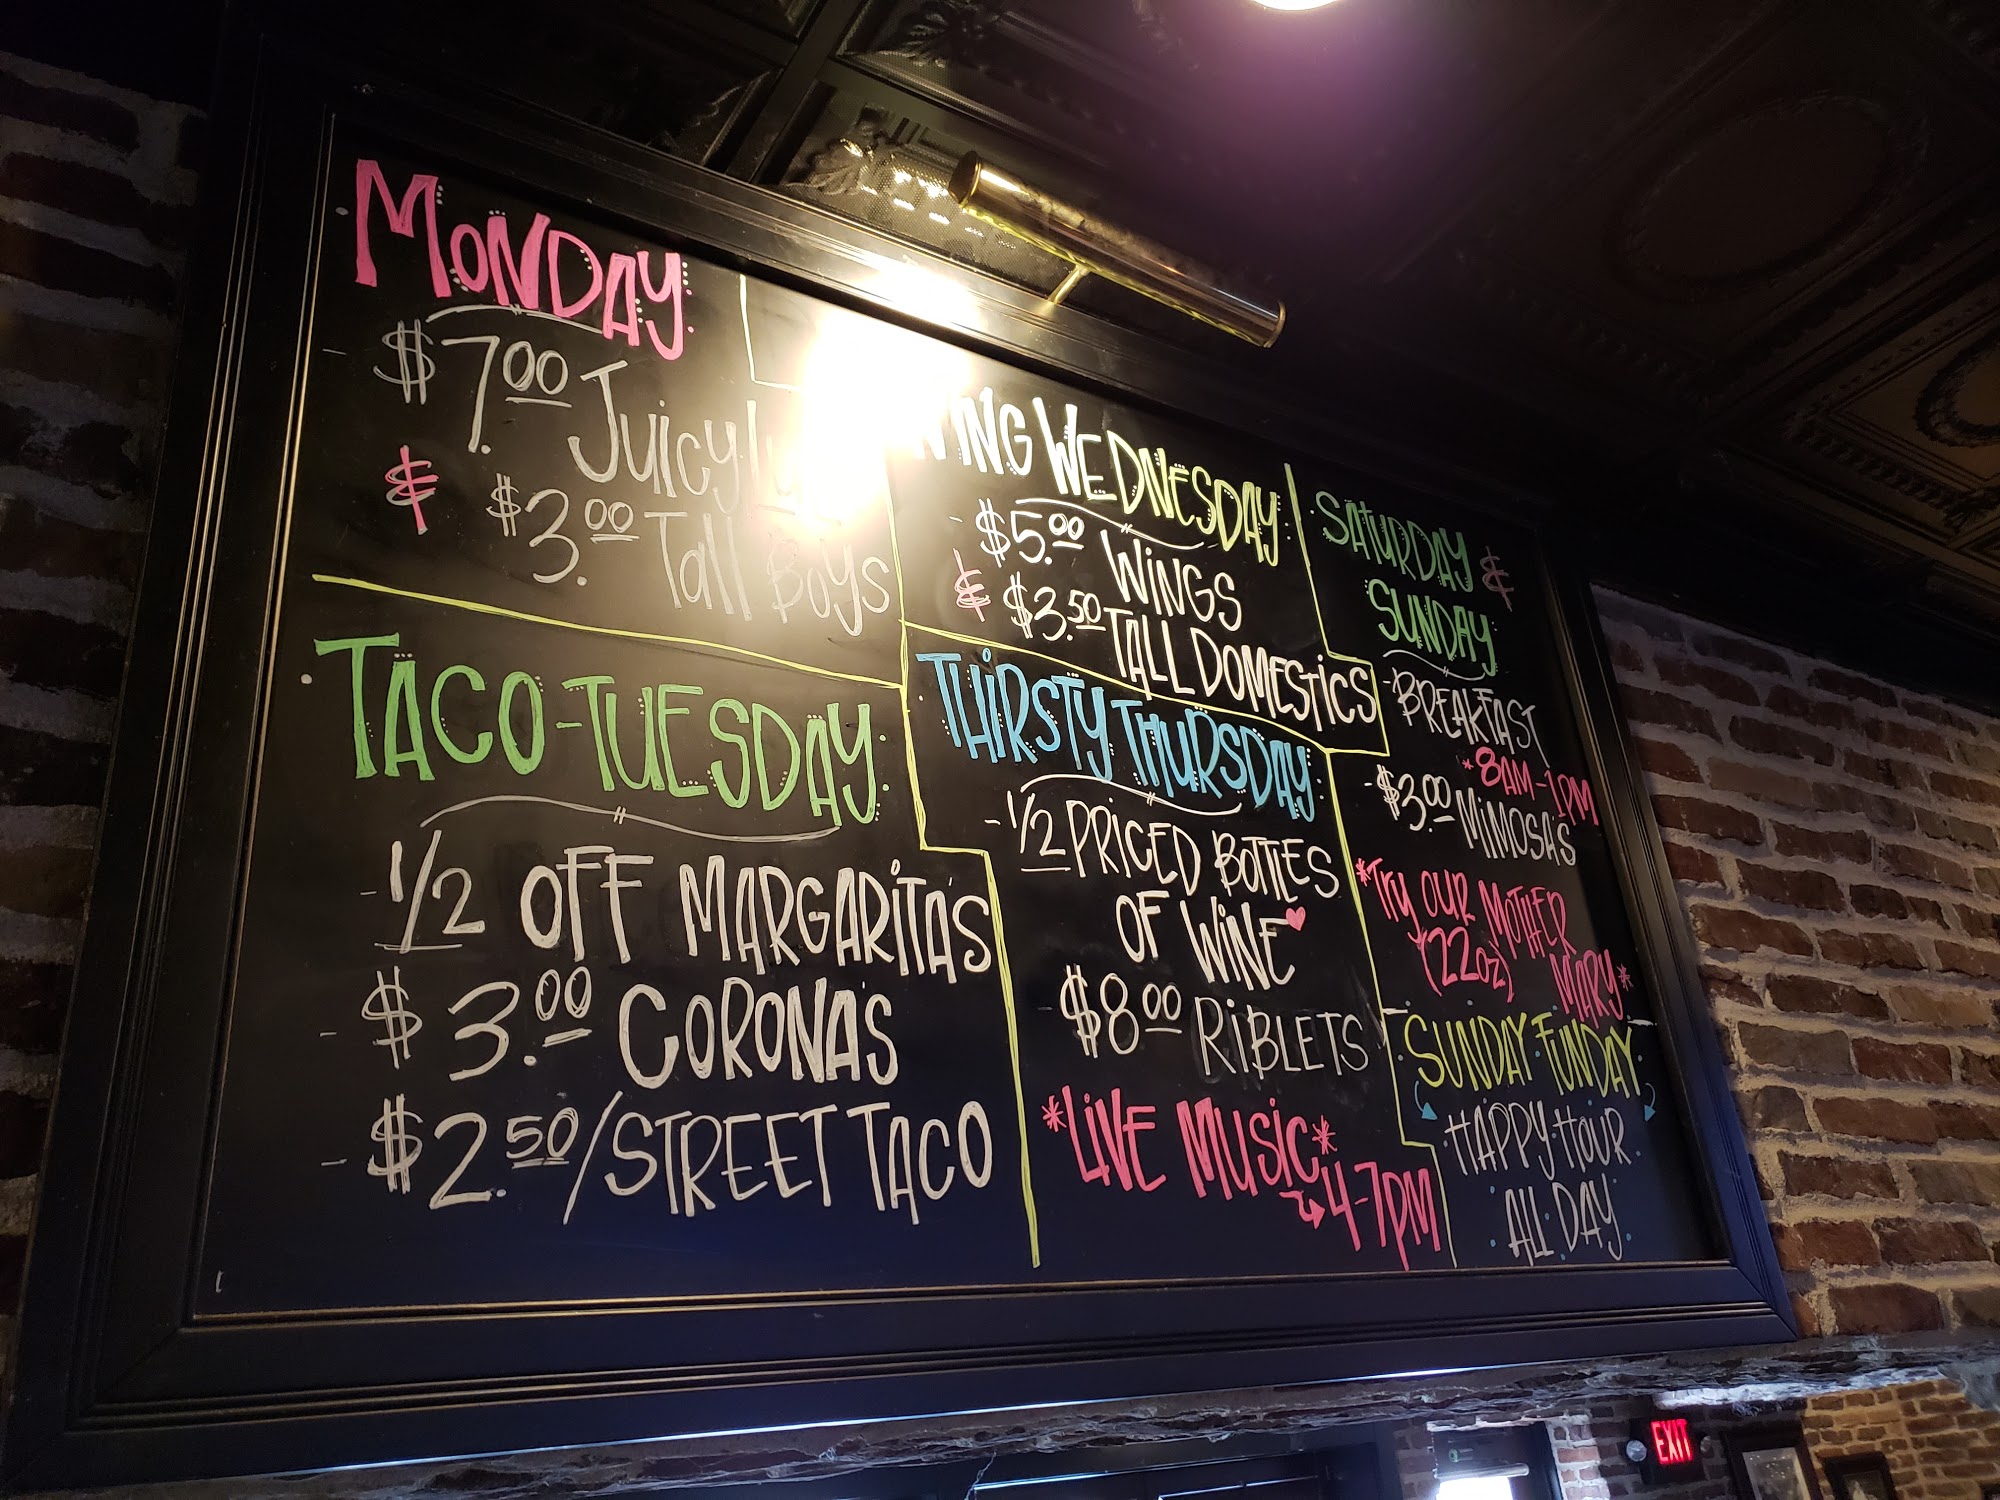 Monday
- $7.00 Juicy
& $3.00 Tall Boys
Taco-Tuesday
- 1/2 OFF MARGARITA'S
- $3.00 CORONA'S
- $2.50/STREET TACO
WING WEDNESDAY
- $5.00 WINGS
& $3.50 TALL DOMESTICS
THIRSTY THURSDAY
- 1/2 PRICED BOTTLES
OF WINE
- $8.00 RIBLETS
*LIVE MUSIC*
4-7PM
SATURDAY &
SUNDAY
- BREAKFAST
*8AM-1PM
- $3.00 MIMOSA'S
*Try OUR MOTHER
(22oz) MARY*
SUNDAY FUNDAY
HAPPY HOUR
ALL DAY
EXIT